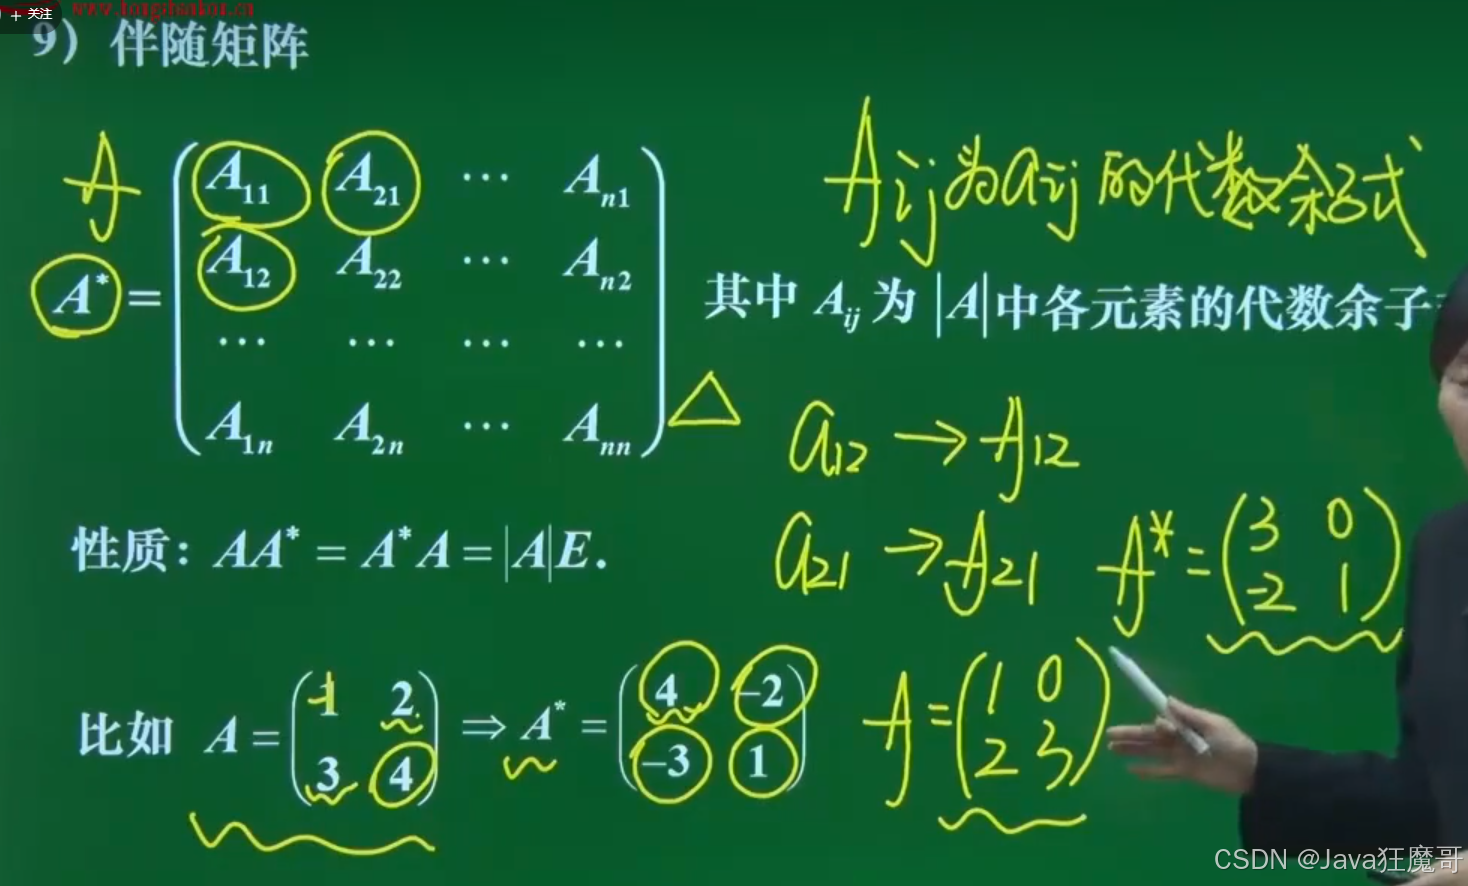 + 关注
9）伴随矩阵
A
A* = ( A11 A21 ⋯ An1
A12 A22 ⋯ An2
⋯ ⋯ ⋯ ⋯
A1n A2n ⋯ Ann ) △
Aij为aij的代数余子式
其中 Aij 为 |A| 中各元素的代数余子
a12 → A12
a21 → A21
A* = ( 3 0
-2 1 )
性质：AA* = A*A = |A|E.
比如 A = ( 1 2
3 4 ) ⇒ A* = ( 4 -2
-3 1 )
A = ( 1 0
2 3 )
CSDN @Java狂魔哥